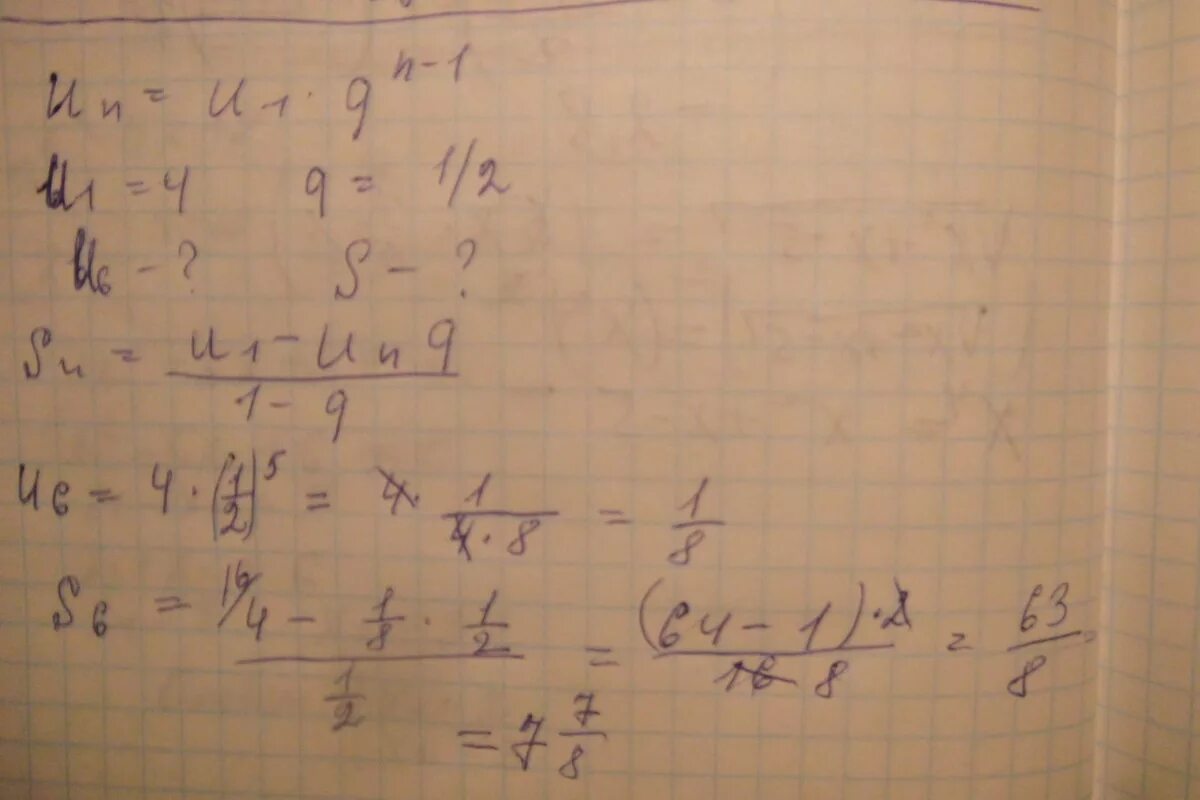 Uₙ = U₁ · qⁿ⁻¹
U₁ = 4 q = 1/2
U₆ - ? S - ?
Sₙ = (U₁ - Uₙ q) / (1 - q)
U₆ = 4 · (1/2)⁵ = 4 · 1/(4 · 8) = 1/8
S₆ = (¹⁶/4 - 1/8 · 1/2) / (1/2) = ((64 - 1) · 2) / (16 8) = 63/8
= 7 7/8